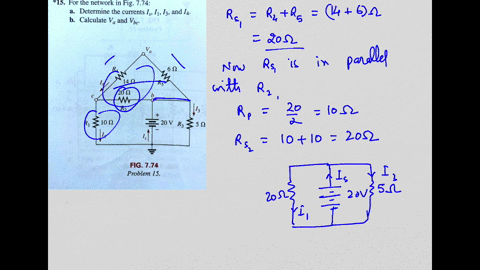 *15. For the network in Fig. 7.74:
a. Determine the currents Is, I1, I3, and I4.
b. Calculate Va and Vbc.
Va
6 Ω
14 Ω
20 Ω
c
b
R2
I3
10 Ω
20 V
R3
5 Ω
Is
FIG. 7.74
Problem 15.
RS1 = R4 + R5 = (14 + 6) Ω
= 20Ω
Now RS1 is in parallel
with R2,
RP = 20/2 = 10Ω
RS2 = 10 + 10 = 20Ω
20Ω
I1
Is
20V
I3
5Ω